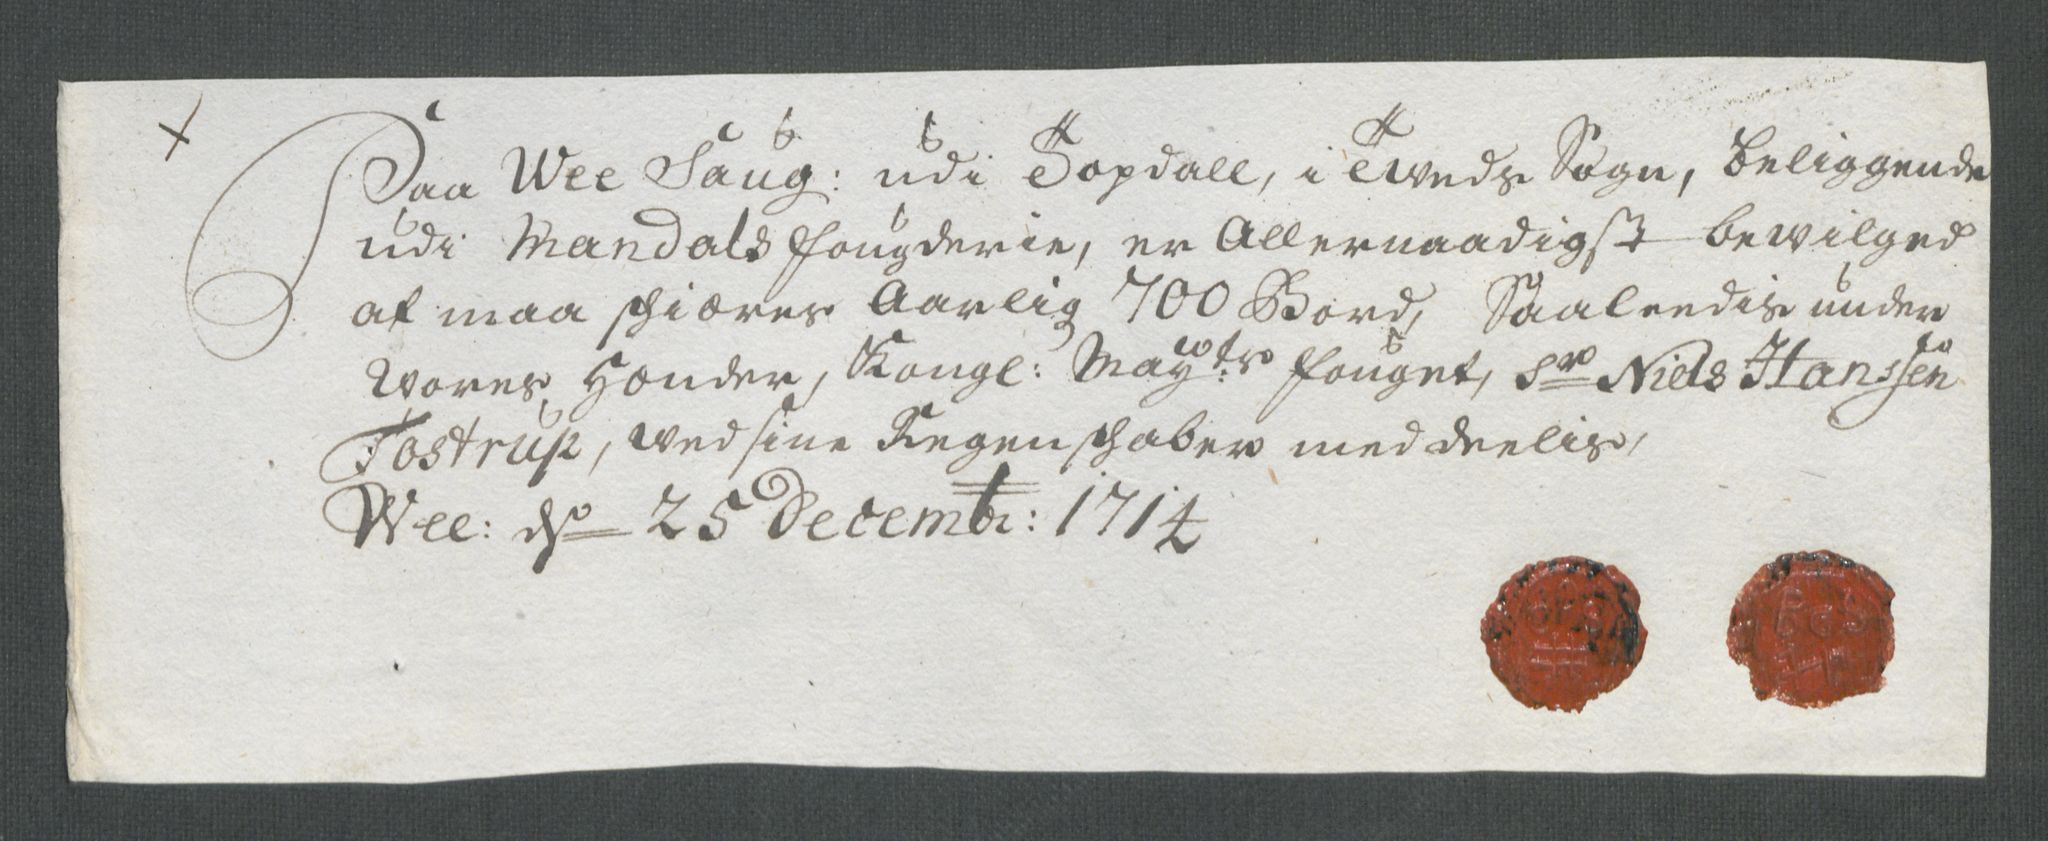 Paa Wee Saug: udi Topdall, i Tweds Sogn, beliggende
udi Mandals fougderie, er Allernaadigst bewilged
at maa schiæres Aarlig 700 Bord, Saaleedis under
Wores Hænder, Kongl: Maytts fouget, Sr Niels Hanssen
Tostrup, wed sine Regenschaber meddeelis,
Wee: ds 25 Decembr: 1714